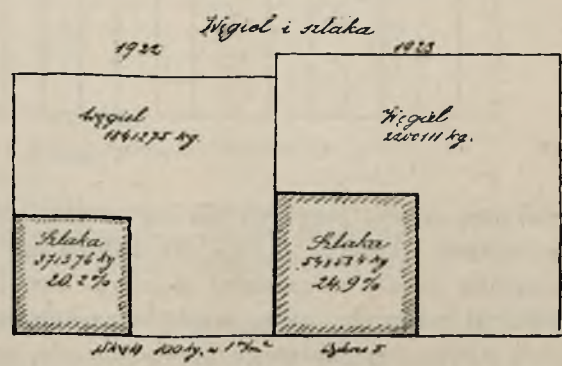 Węgiel i szlaka
1922
1923
Węgiel
1841275 kg.
Węgiel
2200111 kg.
Szlaka
371576 kg
20.2%
Szlaka
kg
24.9%
100 kg. w 1
Wykres 5